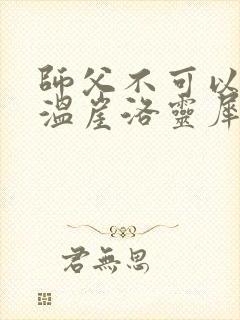 師父不可以
溫崖洛靈犀
君無思